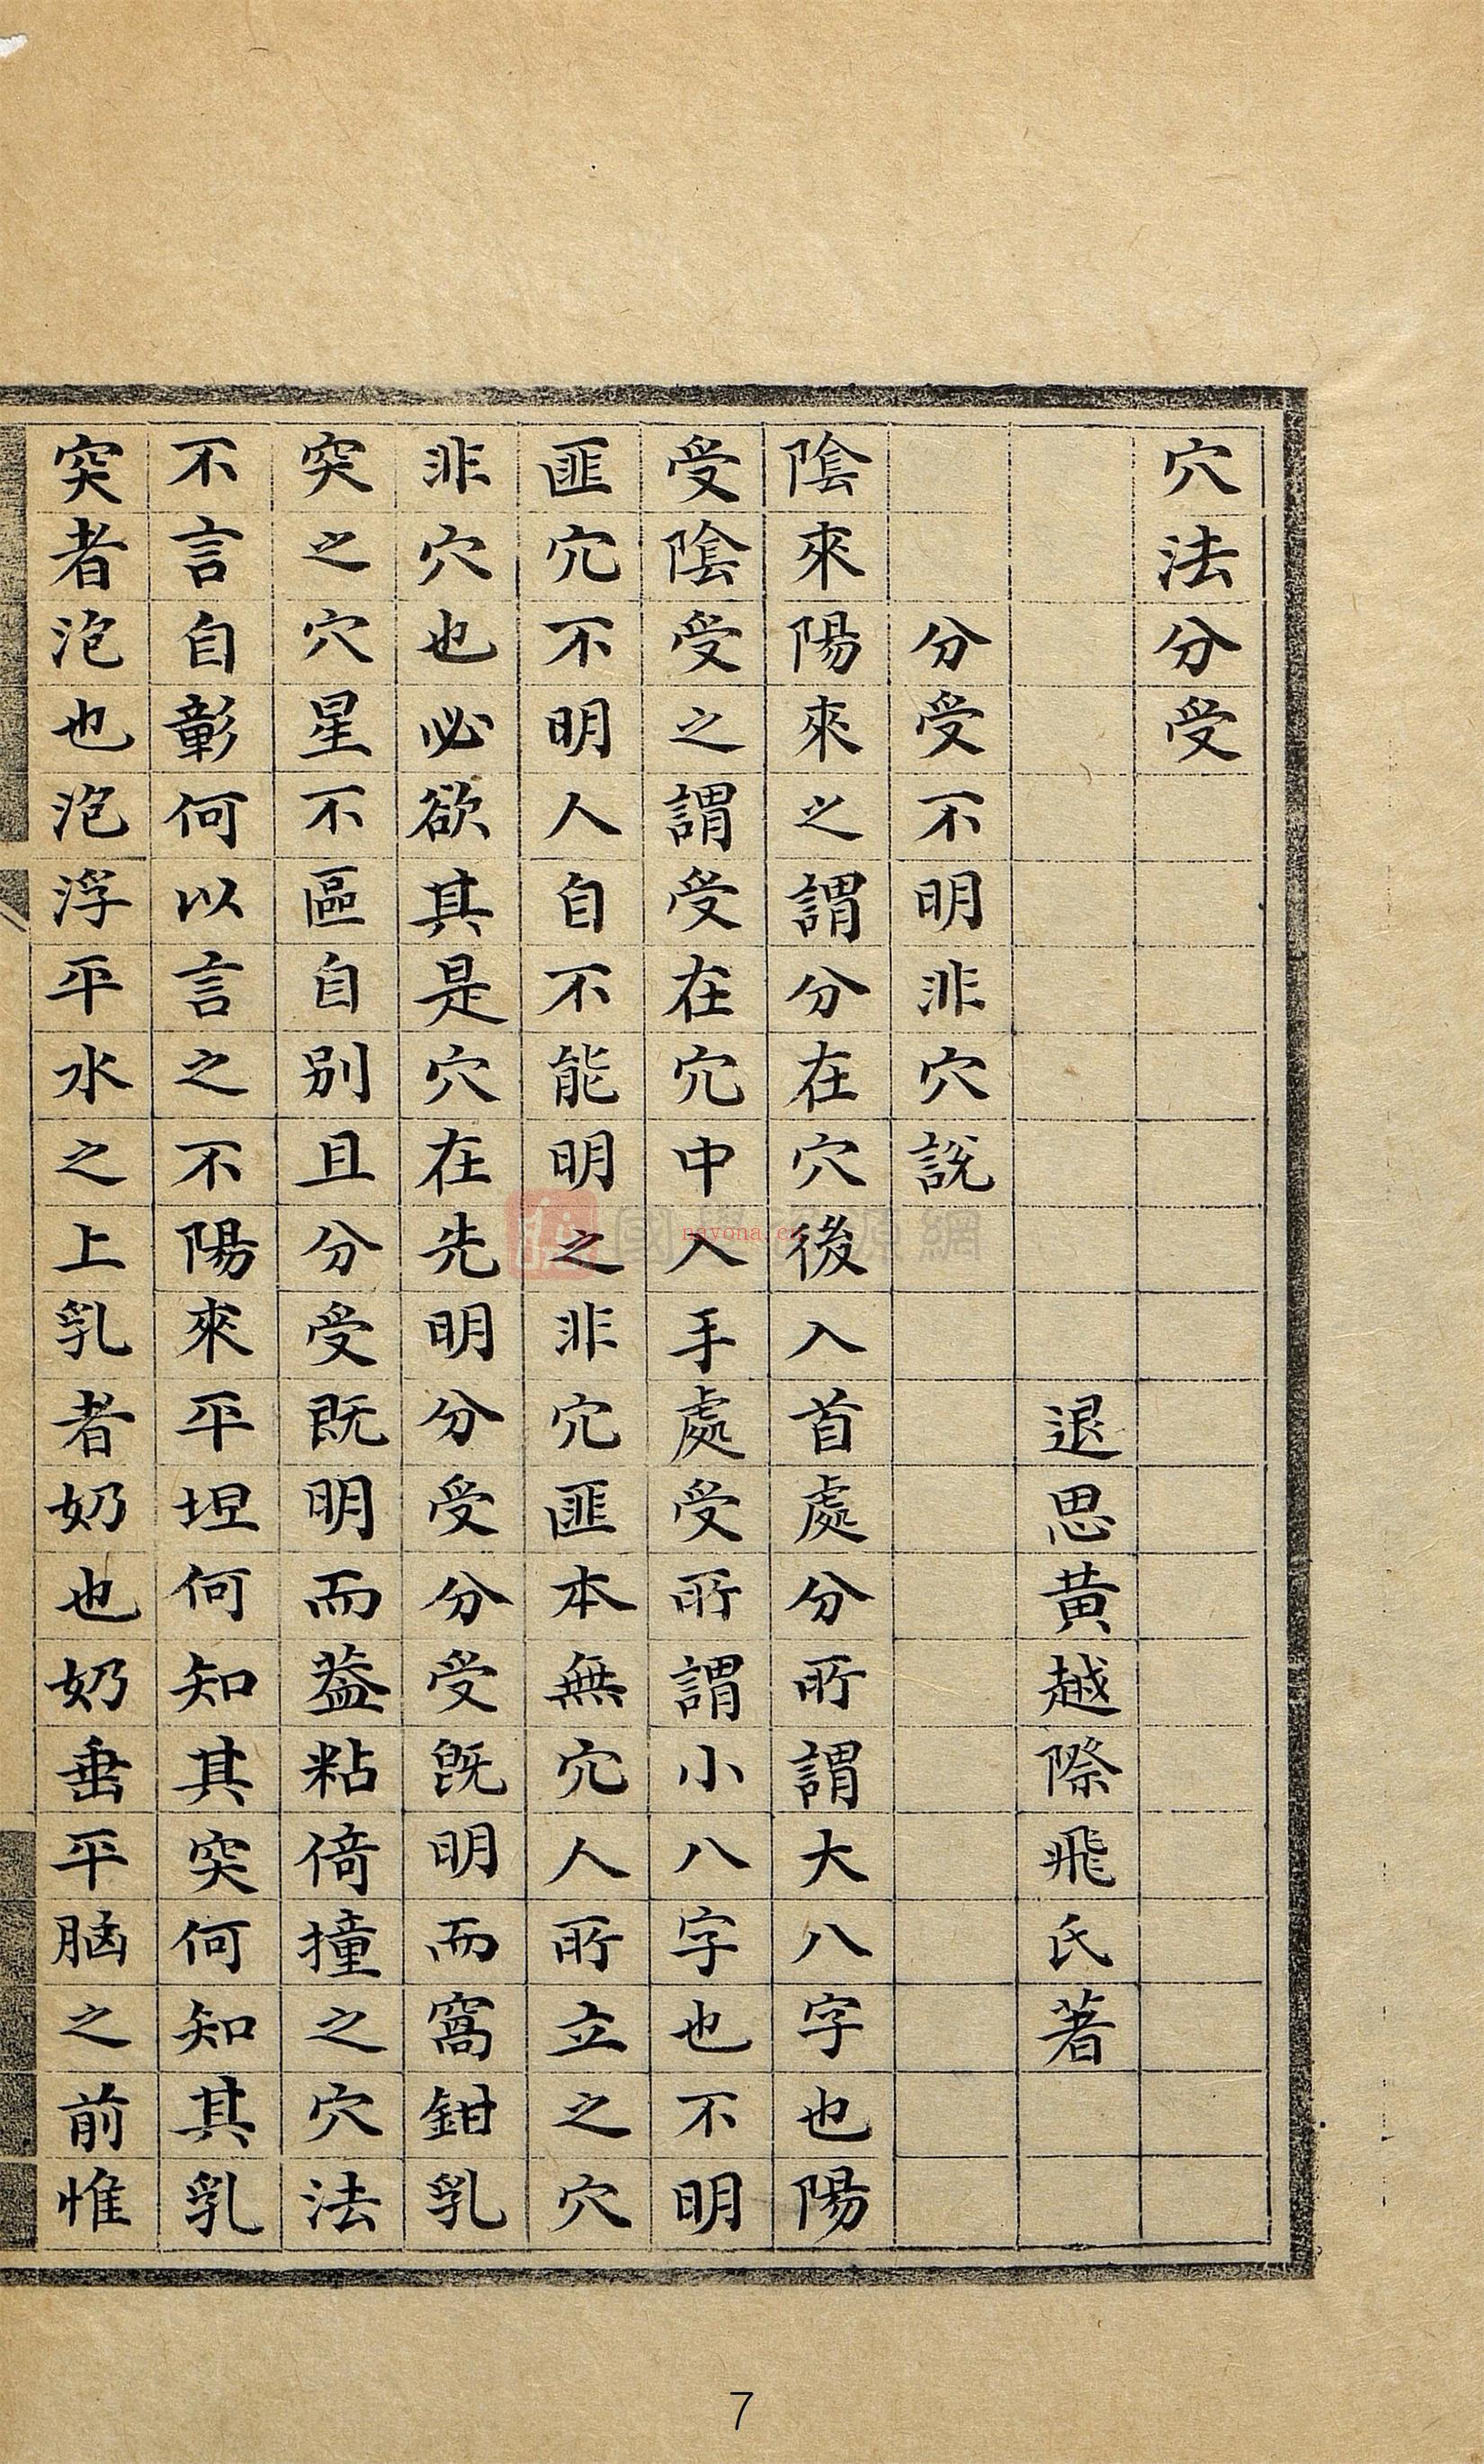 穴法分受
退思黃越際飛氏著
分受不明非穴說
陰來陽來之謂分在穴後入首處分所謂大八字也陽
受陰受之謂受在穴中入手處受所謂小八字也不明
匪穴不明人自不能明之非穴匪本無穴人所立之穴
非穴也必欲其是穴在先明分受分受既明而窩鉗乳
突之穴星不區自別且分受既明而葢粘倚撞之穴法
不言自彰何以言之不陽來平坦何知其突何知其乳
突者泡也泡浮平水之上乳者奶也奶垂平脑之前惟
國學資源網
nayona.cn
7